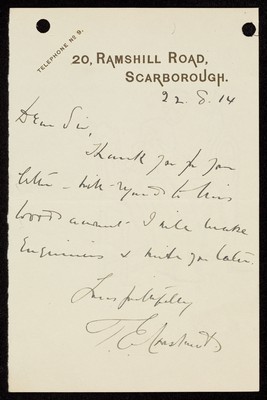 TELEPHONE Nº 9.
20, RAMSHILL ROAD,
SCARBOROUGH.
22. 8. 14
Dear Sir,
Thank you for your
letter - with regard to Miss
Woods account - I will make
Enquiries & write you later.
Yours faithfully
T. E.